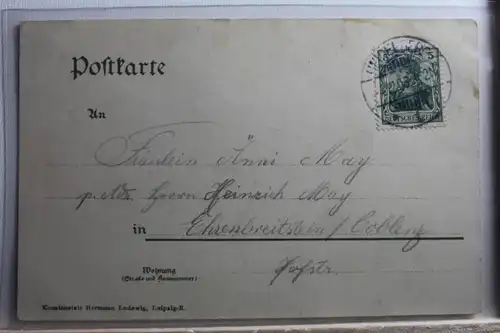 Postkarte
An
Fräulein Änni May
p. Adr. Herrn Heinrich May
in Ehrenbreitstein / Coblenz
Hofstr.
Wohnung
(Straße und Hausnummer)
Kunstanstalt Hermann Ludewig, Leipzig-R.